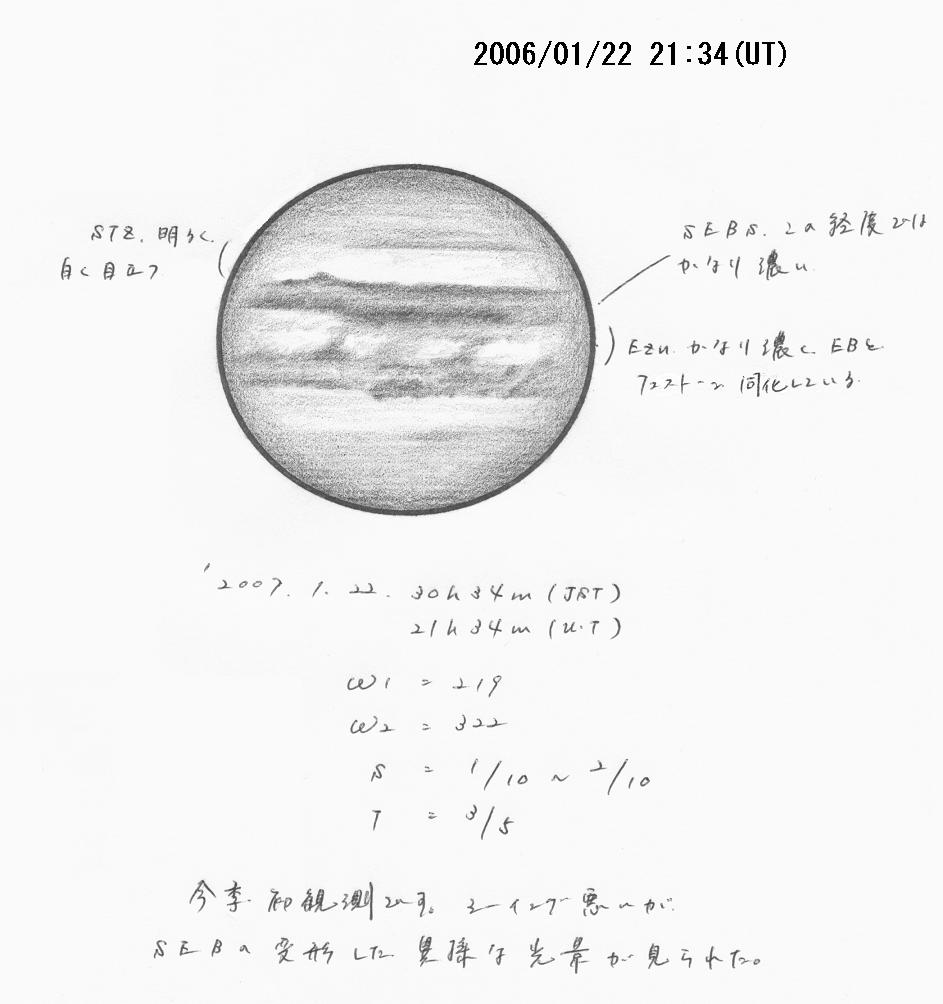 2006/01/22 21:34(UT)
STZ. 明るく、
白く目立つ
SEBS. この経度では
かなり濃い
EZは かなり濃く、EBと
フェストーン 同化している。
'2007. 1. 22. 30h34m (JST)
21h34m (U.T)
ω1 = 219
ω2 = 322
S = 1/10 ~ 2/10
T = 3/5
今季初観測です。シーイング悪いが
SEBの変形した異様な光景が見られた。